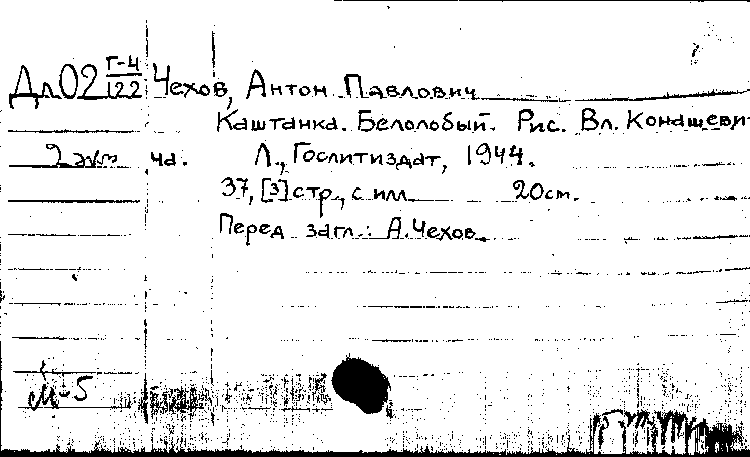 Дл02 Г-4/122 Чехов, Антон Павлович
Каштанка. Белолобый. Рис. Вл. Конашеви-
2 экз ча. Л., Гослитиздат, 1944.
37, [3] стр., с илл. 20 см.
Перед загл.: А. Чехов.
М-5